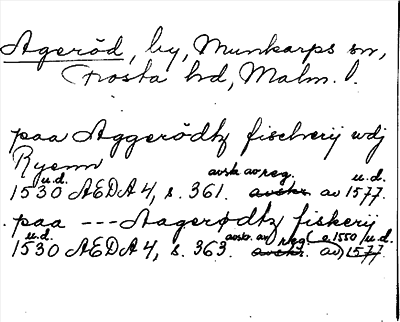 Ageröd, by, Munkarps sn,
Frosta hd, Malm. l.
paa Aggerödtz fischerij wdj
Ryenn
avskr. av reg.
u.d. u.d.
1530 AEDA 4, s. 361. avskr. av 1577.
paa --- Aagerødtz fiskerij
u.d. avskr. av reg. (c. 1550) u.d.
1530 AEDA 4, s. 363. avskr. av 1577.